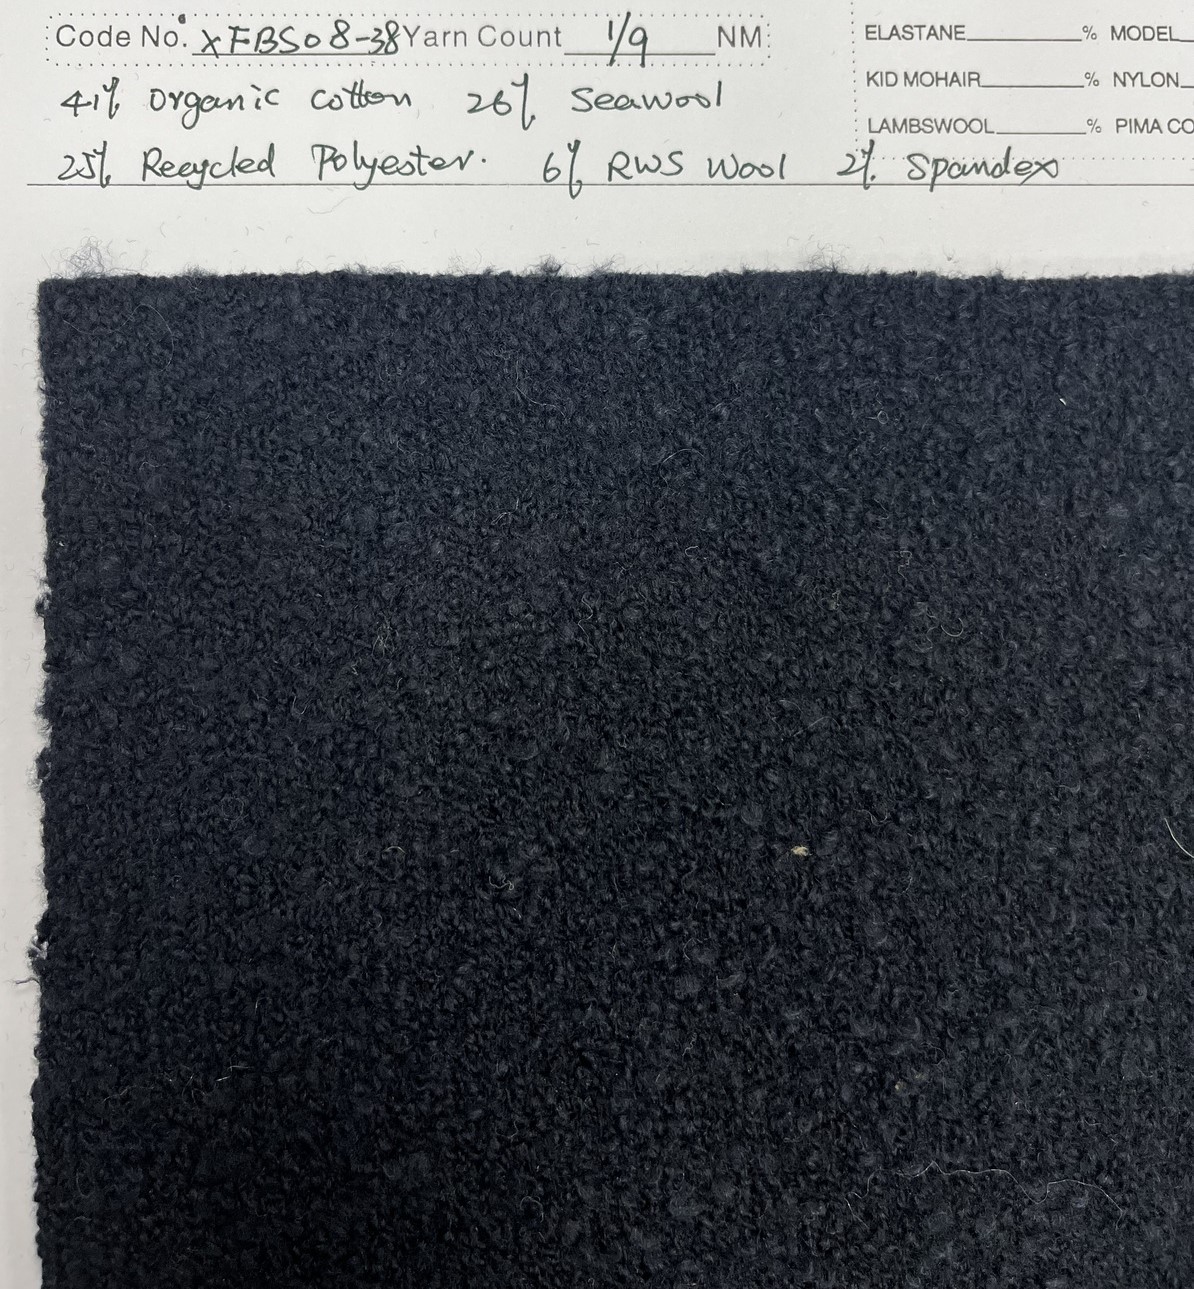 Code No. XFBS08-38 Yarn Count 1/9 NM
41% Organic cotton 26% Seawool
25% Recycled Polyester. 6% RWS Wool 2% Spandex
ELASTANE % MODEL
KID MOHAIR % NYLON
LAMBSWOOL % PIMA CO